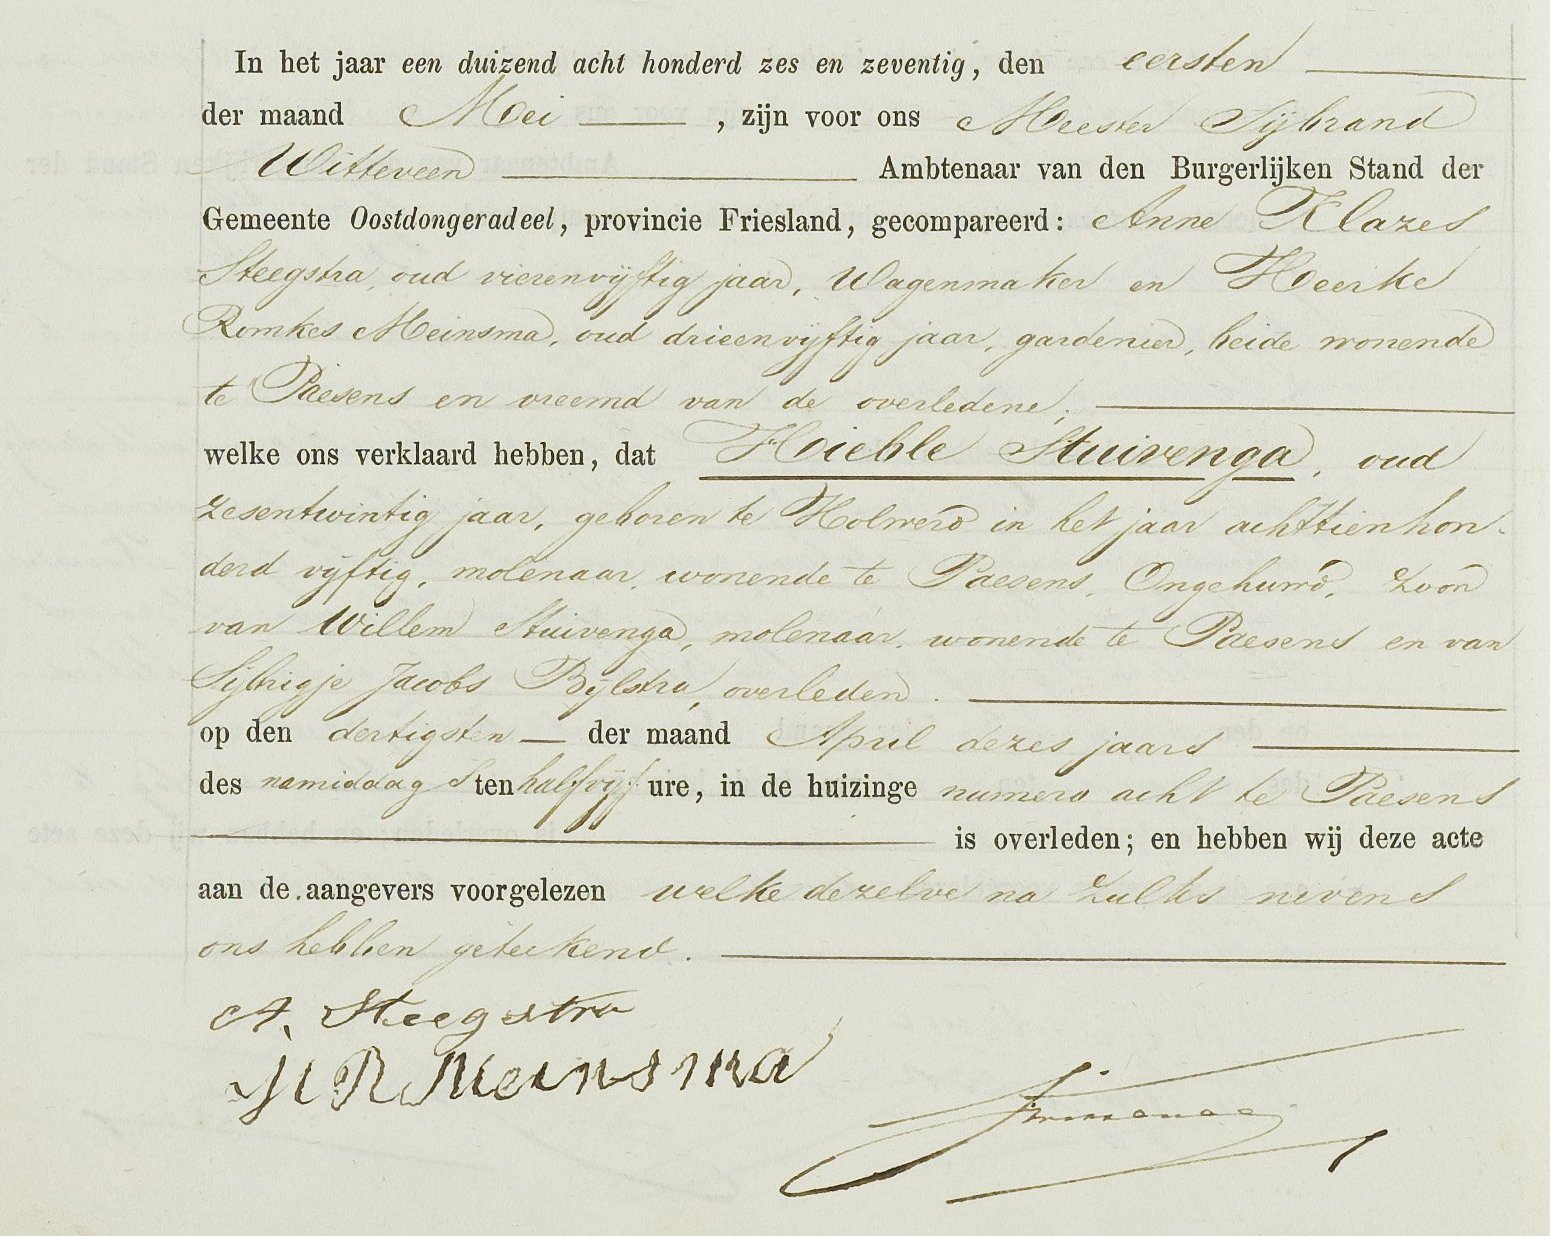 In het jaar een duizend acht honderd zes en zeventig, den eersten
der maand Mei, zijn voor ons Meester Sijbrand
Witteveen Ambtenaar van den Burgerlijken Stand der
Gemeente Oostdongeradeel, provincie Friesland, gecompareerd: Anne Klazes
Steegstra, oud vierenvijftig jaar, Wagenmaker en Heerke
Romkes Meinsma, oud drieenvijftig jaar, gardenier, beide wonende
te Paesens en vreemd van de overledene,
welke ons verklaard hebben, dat Hoieble Stuivenga, oud
zesentwintig jaar, geboren te Holwerd in het jaar achttienhon-
derd vijftig, molenaar, wonende te Paesens, Ongehuwd, zoon
van Willem Stuivenga, molenaar, wonende te Paesens en van
Sijbrigje Jacobs Bijlstra, overleden.
op den dertigsten der maand April dezes jaars
des namiddags ten half vijf ure, in de huizinge numero acht te Paesens
is overleden; en hebben wij deze acte
aan de aangevers voorgelezen welke dezelve na zulks nevens
ons hebben geteekend.
A. Steegstra
H R Meinsma